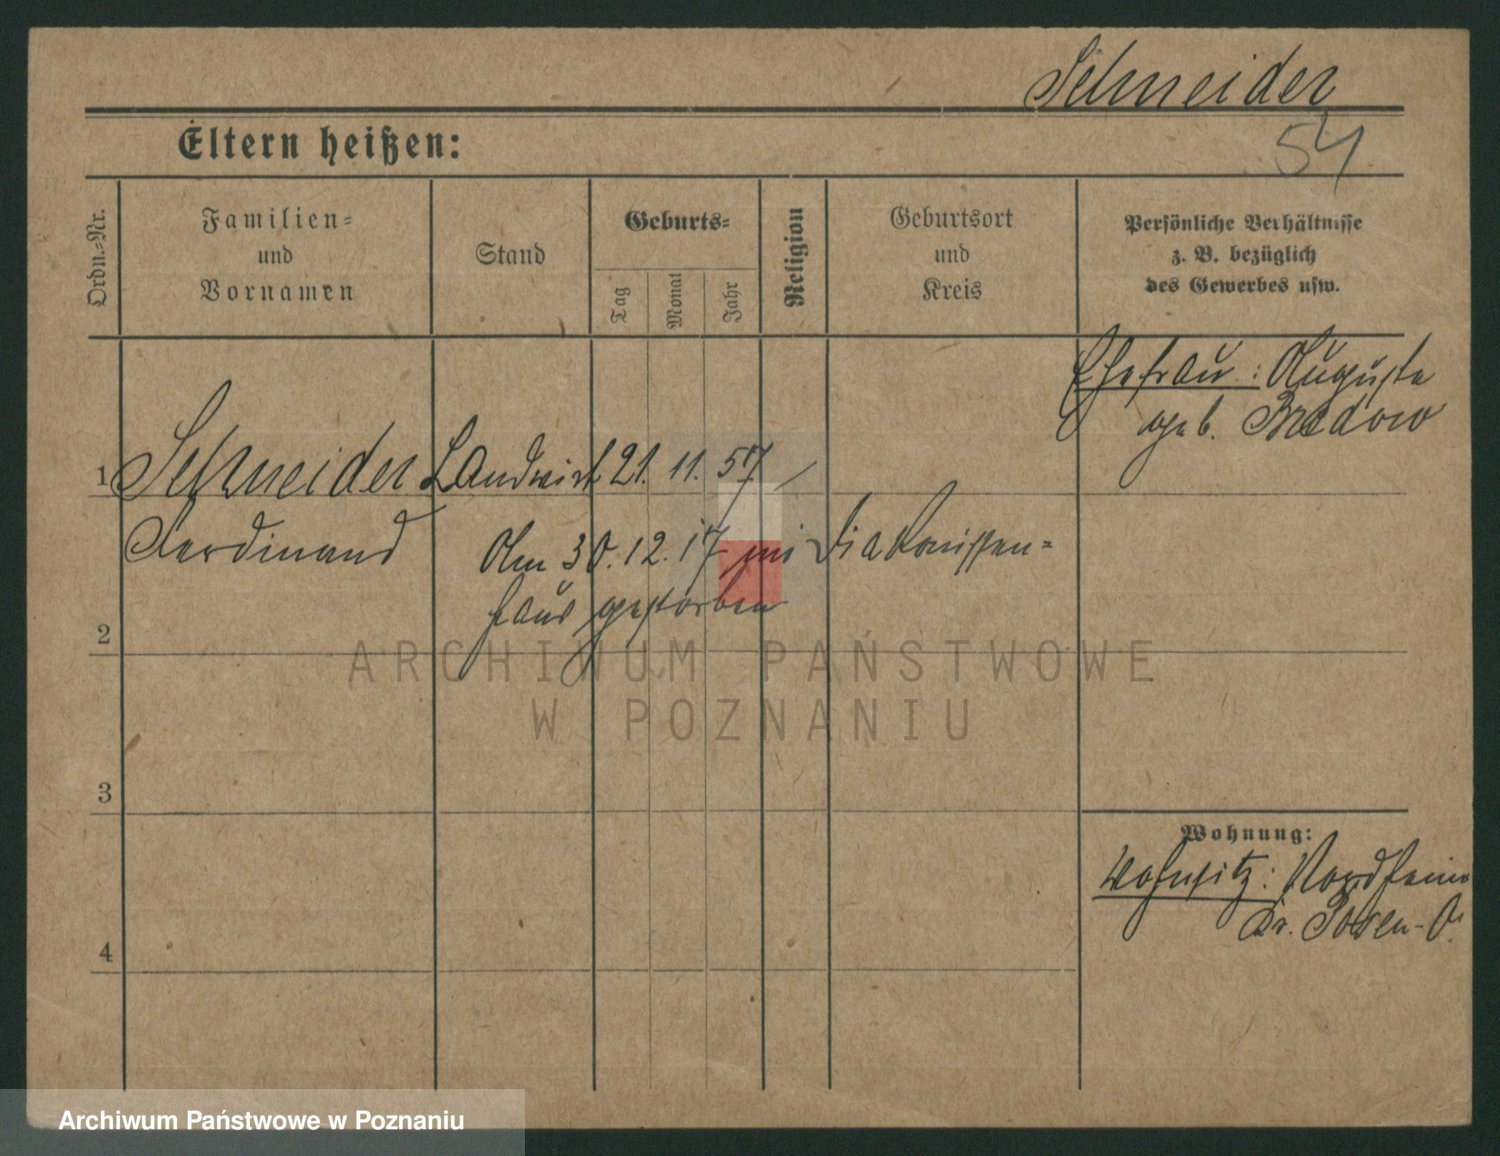 Schneider
54
Eltern heißen:
Ordn.-Nr.
Familien-
und
Vornamen
Stand
Geburts-
Tag
Monat
Jahr
Religion
Geburtsort
und
Kreis
Persönliche Verhältnisse
z. B. bezüglich
des Gewerbes usw.
Ehefrau: Auguste
geb. Bredow
1 Schneider Landwirt 21. 11. 57 /
Ferdinand
Am 30.12.17 im Diakonissen-
haus gestorben
2
ARCHIWUM PAŃSTWOWE
W POZNANIU
3
Wohnung:
Wohnsitz: Nordheim
Kr. Posen-O.
4
Archiwum Państwowe w Poznaniu